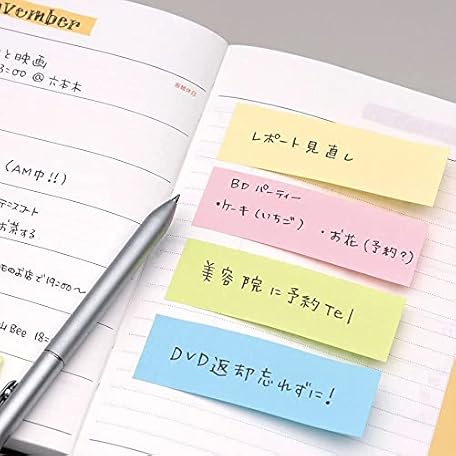 vember
と映画
3:00 @ 六本木
(AM中!!)
テニスコート
お茶する
のお店で19:00〜
山Bee 18=
レポート見直し
BD パーティー
・ケーキ(いちご) ・お花(予約?)
美容院に予約Tel
DVD返却忘れずに!